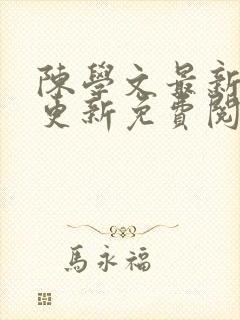 陳學文最新
更新免費閱
馬永福